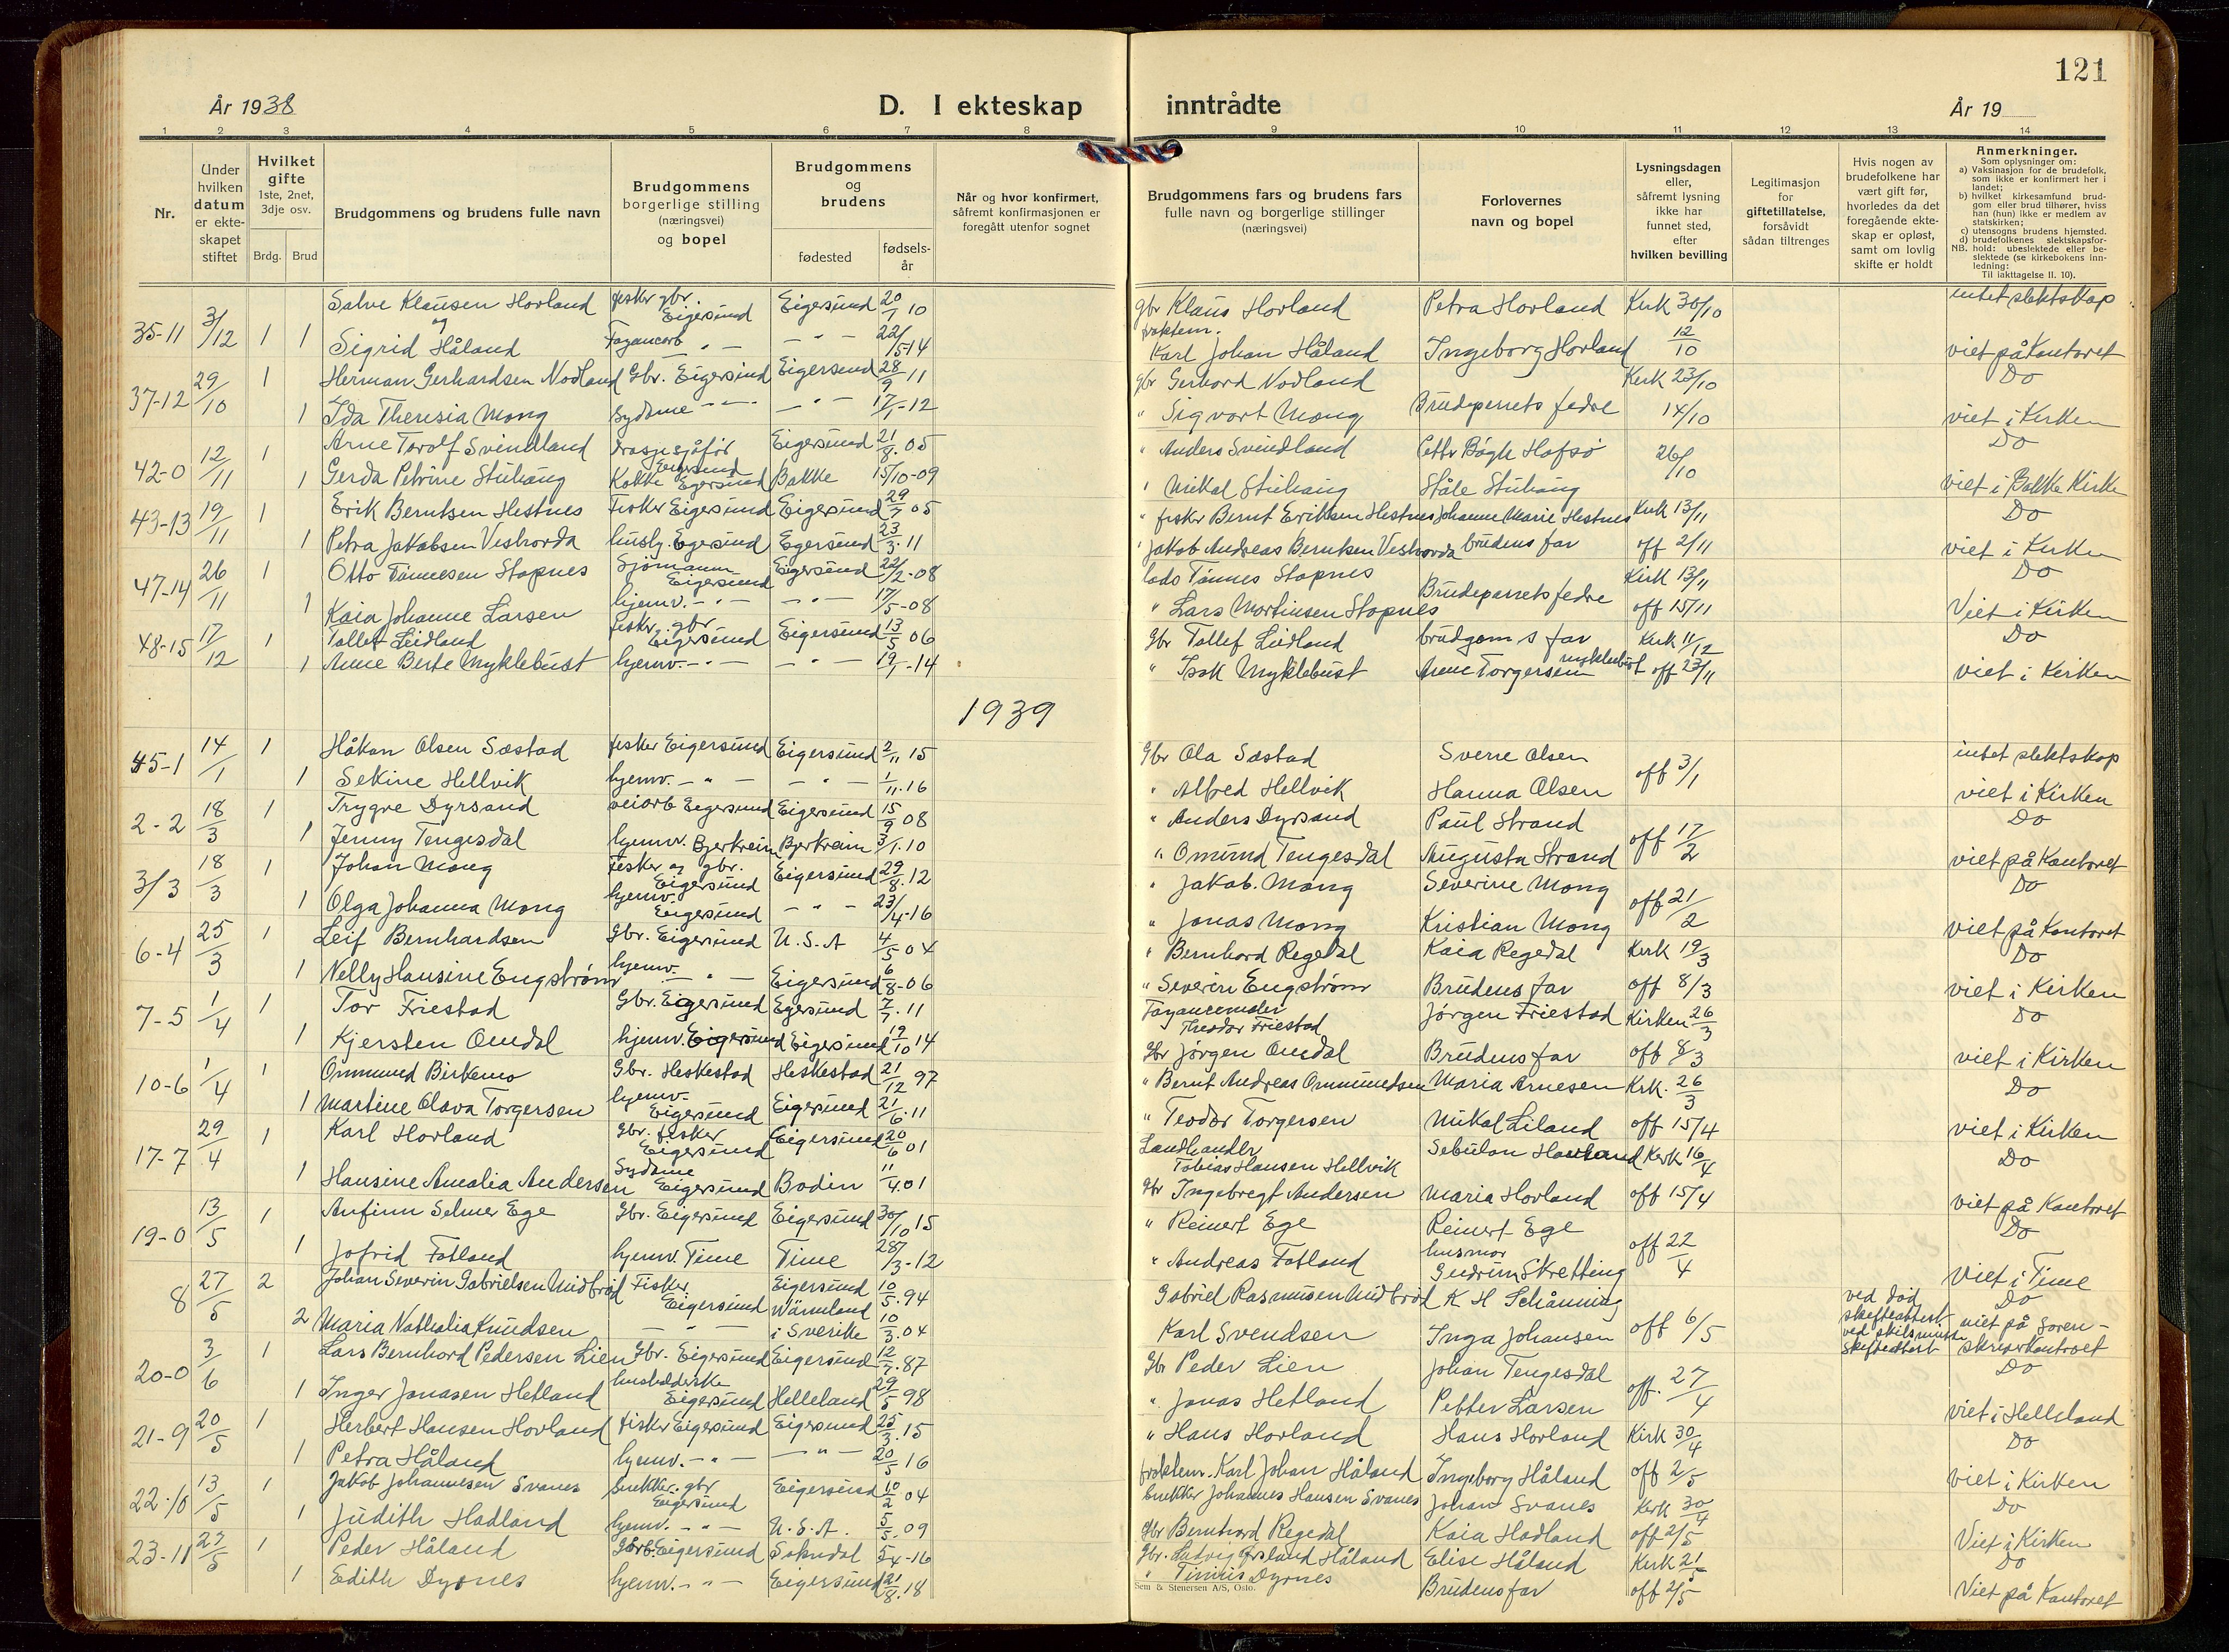 121
År 1938
D. I ekteskap inntrådte
År 19
1 2 3 4 5 6 7 8 9 10 11 12 13 14
Nr.
Under hvilken datum er ekteskapet stiftet
Hvilket gifte 1ste, 2net, 3dje osv.
Brdg. Brud
Brudgommens og brudens fulle navn
Brudgommens borgerlige stilling (næringsvei) og bopel
Brudgommens og brudens
fødested
fødselsår
Når og hvor konfirmert, såfremt konfirmasjonen er foregått utenfor sognet
Brudgommens fars og brudens fars fulle navn og borgerlige stillinger (næringsvei)
Forlovernes navn og bopel
Lysningsdagen eller, såfremt lysning ikke har funnet sted, efter hvilken bevilling
Legitimasjon for giftetillatelse, forsåvidt sådan tiltrenges
Hvis nogen av brudefolkene har vært gift før, hvorledes da det foregående ekteskap er opløst, samt om lovlig skifte er holdt
Anmerkninger.
Som oplysninger om:
a) Vaksinasjon for de brudefolk, som ikke er konfirmert her i landet;
b) hvilket kirkesamfund brudgom eller brud tilhører, hviss han (hun) ikke er medlem av statskirken;
c) utensogns brudens hjemsted.
d) brudefolkenes slektskapsforhold: ubeslektede eller beslektede (se kirkebokens innledning:
NB. Til iakttagelse II. 10).
35-11 3/12 1 1 Salve Klausen Hovland fisker gbr. Eigersund Eigersund 20/1 10 gbr Klaus Hovland Petra Hovland Kirk 30/10 intet slektskap
og
Sigrid Håland Fayancarb - " - - " - 22/5-14 Karl Johan Håland Ingeborg Hovland 12/10 viet på Kontoret
37-12 29/10 1 Herman Gerhardsen Nodland Gbr. Eigersund Eigersund 28/9 11 gbr Gerhard Nodland Kirk 23/10 Do
1 Ida Theresia Mong Sydame - " - - " - 17/1-12 " Sigvart Mong Brudeparrets fedre 14/10 viet i Kirken
42-0 12/11 1 Arne Torolf Svindland Drosjesjåfør Eigersund Eigersund 05 " Anders Svindland Hafsø 26/10 Do
1 Gerda Petrine Stuhaug Kokke Egersund Bakke 15/10-09 " Mikal Stuhaug Ståle Stuhaug viet i Bakke Kirke
43-13 19/11 1 Erik Berntsen Hestnes Fisker Eigersund Eigersund 29/7 05 " fisker Bernt Eriksen Hestnes Johanne Marie Hestnes Kirk 13/11 Do
1 Petra Jakobsen Veshovda husby. Egersund Egersund 23/3-11 " Jakob Andreas Berntsen Veshovda brudens far off 2/11 viet i Kirken
47-14 26/11 1 Otto Tønnesen Stapnes Sjømann Eigersund Eigersund 22/2-08 lods Tønnes Stapnes Brudeparrets fedre Kirk 13/11 Do
1 Kaia Johanne Larsen hjemv. - " - - " - 17/5-08 " Lars Mortinsen Stapnes off 15/11 Viet i Kirken
48-15 17/12 1 Tollef Leidland fisker. gbr Eigersund Eigersund 13/5 06 Gbr Tollef Leidland brudgoms far Kirk 11/12 Do
1 Anne Berte Myklebust hjemv. - " - - " - 19/1-14 " Isak Myklebust Arne Torgersen Myklebust off 23/11 viet i Kirken
1939
45-1 14/1 1 Håkon Olsen Sæstad fisker Eigersund Eigersund 2/11 15 Gbr Ola Sæstad Sverre Olsen off 3/1 intet slektskap
1 Sekine Hellvik hjemv. - " - - " - 1/11-16 " Alfred Hellvik Hanna Olsen viet i Kirken
2-2 18/3 1 Trygve Dyrsand veiarb Eigersund Eigersund 15/9 08 " Anders Dyrsand Paul Strand off 17/2 Do
1 Jenny Tengesdal hjemv. Bjerkreim Bjerkreim 3/1.10 " Omund Tengesdal Augusta Strand viet på Kontoret
3/3 18/3 1 Johan Mong fisker og gbr. Eigersund Eigersund 29/8.12 " Jakob Mong Severine Mong off 21/2 Do
1 Olga Johanna Mong hjemv. Eigersund - " - 23/4-16 " Jonas Mong Kristian Mong viet på Kontoret
6-4 25/3 1 Leif Bernhardsen Gbr. Eigersund U.S.A 4/5 04 " Bernhard Regedal Kaia Regedal Kirk 19/3 Do
1 Nelly Hansine Engstrøm hjemv. - " - Eigersund 6/8-06 " Severin Engstrøm Brudens far off 8/3 viet i Kirken
7-5 1/4 1 Tor Friestad Gbr. Eigersund Egersund 7/7.11 Fayancemaler Theodor Friestad Jørgen Friestad Kirken 26/3 Do
1 Kjersten Omdal hjemv. Eigersund Eigersund 19/10 14 Gbr Jørgen Omdal Brudens far off 8/3 viet i Kirken
10-6 1/4 1 Ommund Birkemo Gbr. Heskestad Heskestad 21/12 97 " Bernt Andreas Ommundsen Maria Arnesen Krk. 26/3 Do
1 Martine Olava Torgersen hjemv. Eigersund Eigersund 21/6.11 " Teodor Torgersen Mikal Liland off 15/4 viet i Kirken
17-7 29/4 1 Karl Hovland Gbr. fisker Eigersund Eigersund 20/6 01 Landhandler Tobias Hansen Hellvik Sebulon Hovland Kirk 16/4 Do
1 Hansine Amalia Andersen Sydame Eigersund Bodin 11/4.01 Gbr Ingebregt Andersen Maria Hovland off 15/4 viet på Kontoret
19-0 13/5 1 Anfinn Selmer Ege Gbr. Eigersund Eigersund 30/10 15 " Reinert Ege Reinert Ege off 22/4 Do
1 Jofrid Fotland hjemv. Time Time 28/3-12 " Andreas Fotland husmor Gudrun Skretting Viet i Time
8 27/5 2 Johan Severin Gabrielsen Midbrød Fisker Eigersund Eigersund 10/5.94 Gabriel Rasmusen Midbrød K H Schånning off 6/5 ved død skifteattest Do
2 Maria Nathalia Knudsen - " - Wärmland i Sverike 10/3.04 Karl Svendsen Inga Johansen ved skilsmisse skifteattest viet på Sorenskriverkontoret
20-0 3/6 1 Lars Bernhard Pedersen Lien Gbr. Eigersund Eigersund 12/7.87 Gbr Peder Lien Johan Tengesdal off. 27/4 Do
1 Inger Jonasen Hetland husholderske Eigersund Helleland 29/5 98 " Jonas Hetland Petter Larsen viet i Helleland
21-9 20/5 1 Herbert Hansen Hovland fisker Eigersund Eigersund 25/3.15 " Hans Hovland Hans Hovland Kirk 30/4 Do
1 Petra Håland hjemv. - " - - " - 20/5 16 Karl Johan Håland Ingeborg Håland off 2/5 viet i Kirken
22-10 13/5 1 Jakob Johannesen Svanes snekker. gbr Eigersund Eigersund 10/2 04 snekker Johannes Hansen Svanes Johan Svanes Kirk 30/4 Do
1 Judith Hadland hjemv. - " - U.S.A. 5/5.09 Gbr Bernhard Regedal Kaia Hadland off 2/5 Viet i Kirken
23-11 27/5 1 Peder Håland Eigersund Sokndal 5/4-16 Gbr. Ludvig Håland Elise Håland Kirk 21/5 Do
1 Edith Dyrnes hjemv. - " - Eigersund 21/8.18 " Dyrnes Brudens far off 2/5 Viet på Kontoret
Sem & Stenersen A/S, Oslo.